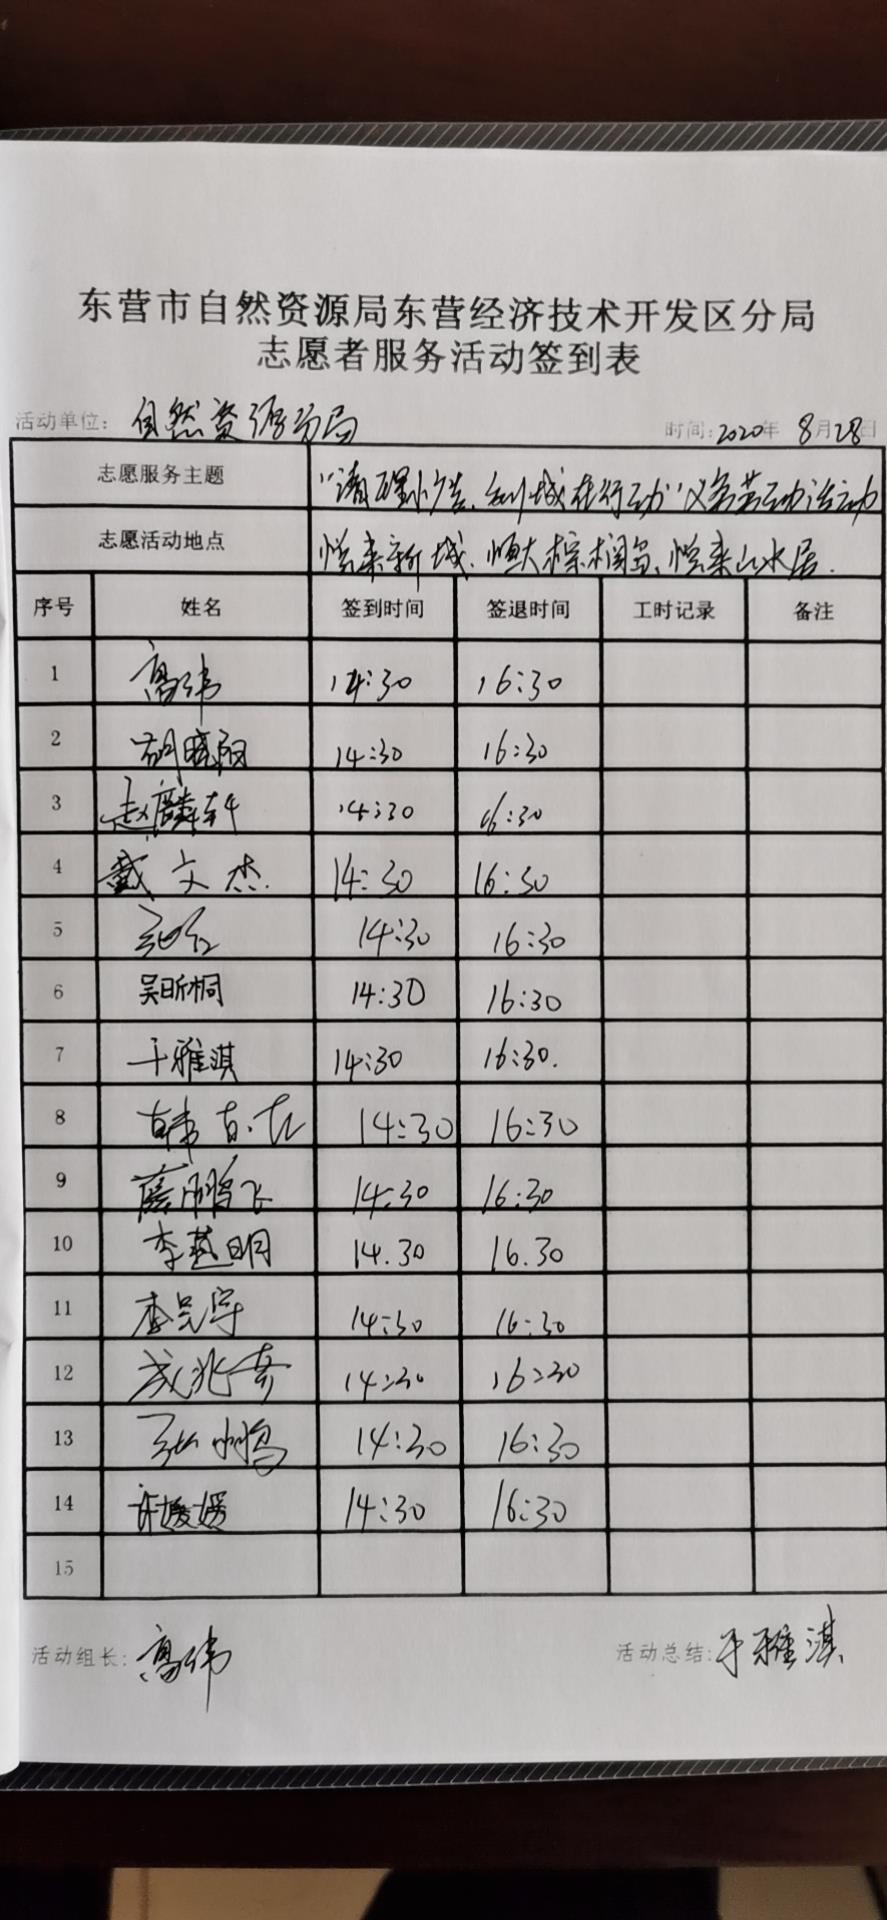 东营市自然资源局东营经济技术开发区分局
志愿者服务活动签到表
活动单位: 自然资源分局 时间:2020年 8月28日
志愿服务主题 "清理小广告、创城在行动"义务劳动活动
志愿活动地点 悦来新城、恒大棕榈岛、悦来山水居.
序号 姓名 签到时间 签退时间 工时记录 备注
1 高伟 14:30 16:30
2 胡晓阳 14:30 16:30
3 赵麟轩 14:30 16:30
4 戴文杰 14:30 16:30
5 14:30 16:30
6 吴昕桐 14:30 16:30
7 于雅淇 14:30 16:30.
8 韩 14:30 16:30
9 鹏飞 14:30 16:30
10 李慧明 14.30 16.30
11 李 宇 14:30 16:30
12 成兆 14:30 16:30
13 张 鹏 14:30 16:30
14 许媛媛 14:30 16:30
15
活动组长: 高伟 活动总结: 于雅淇